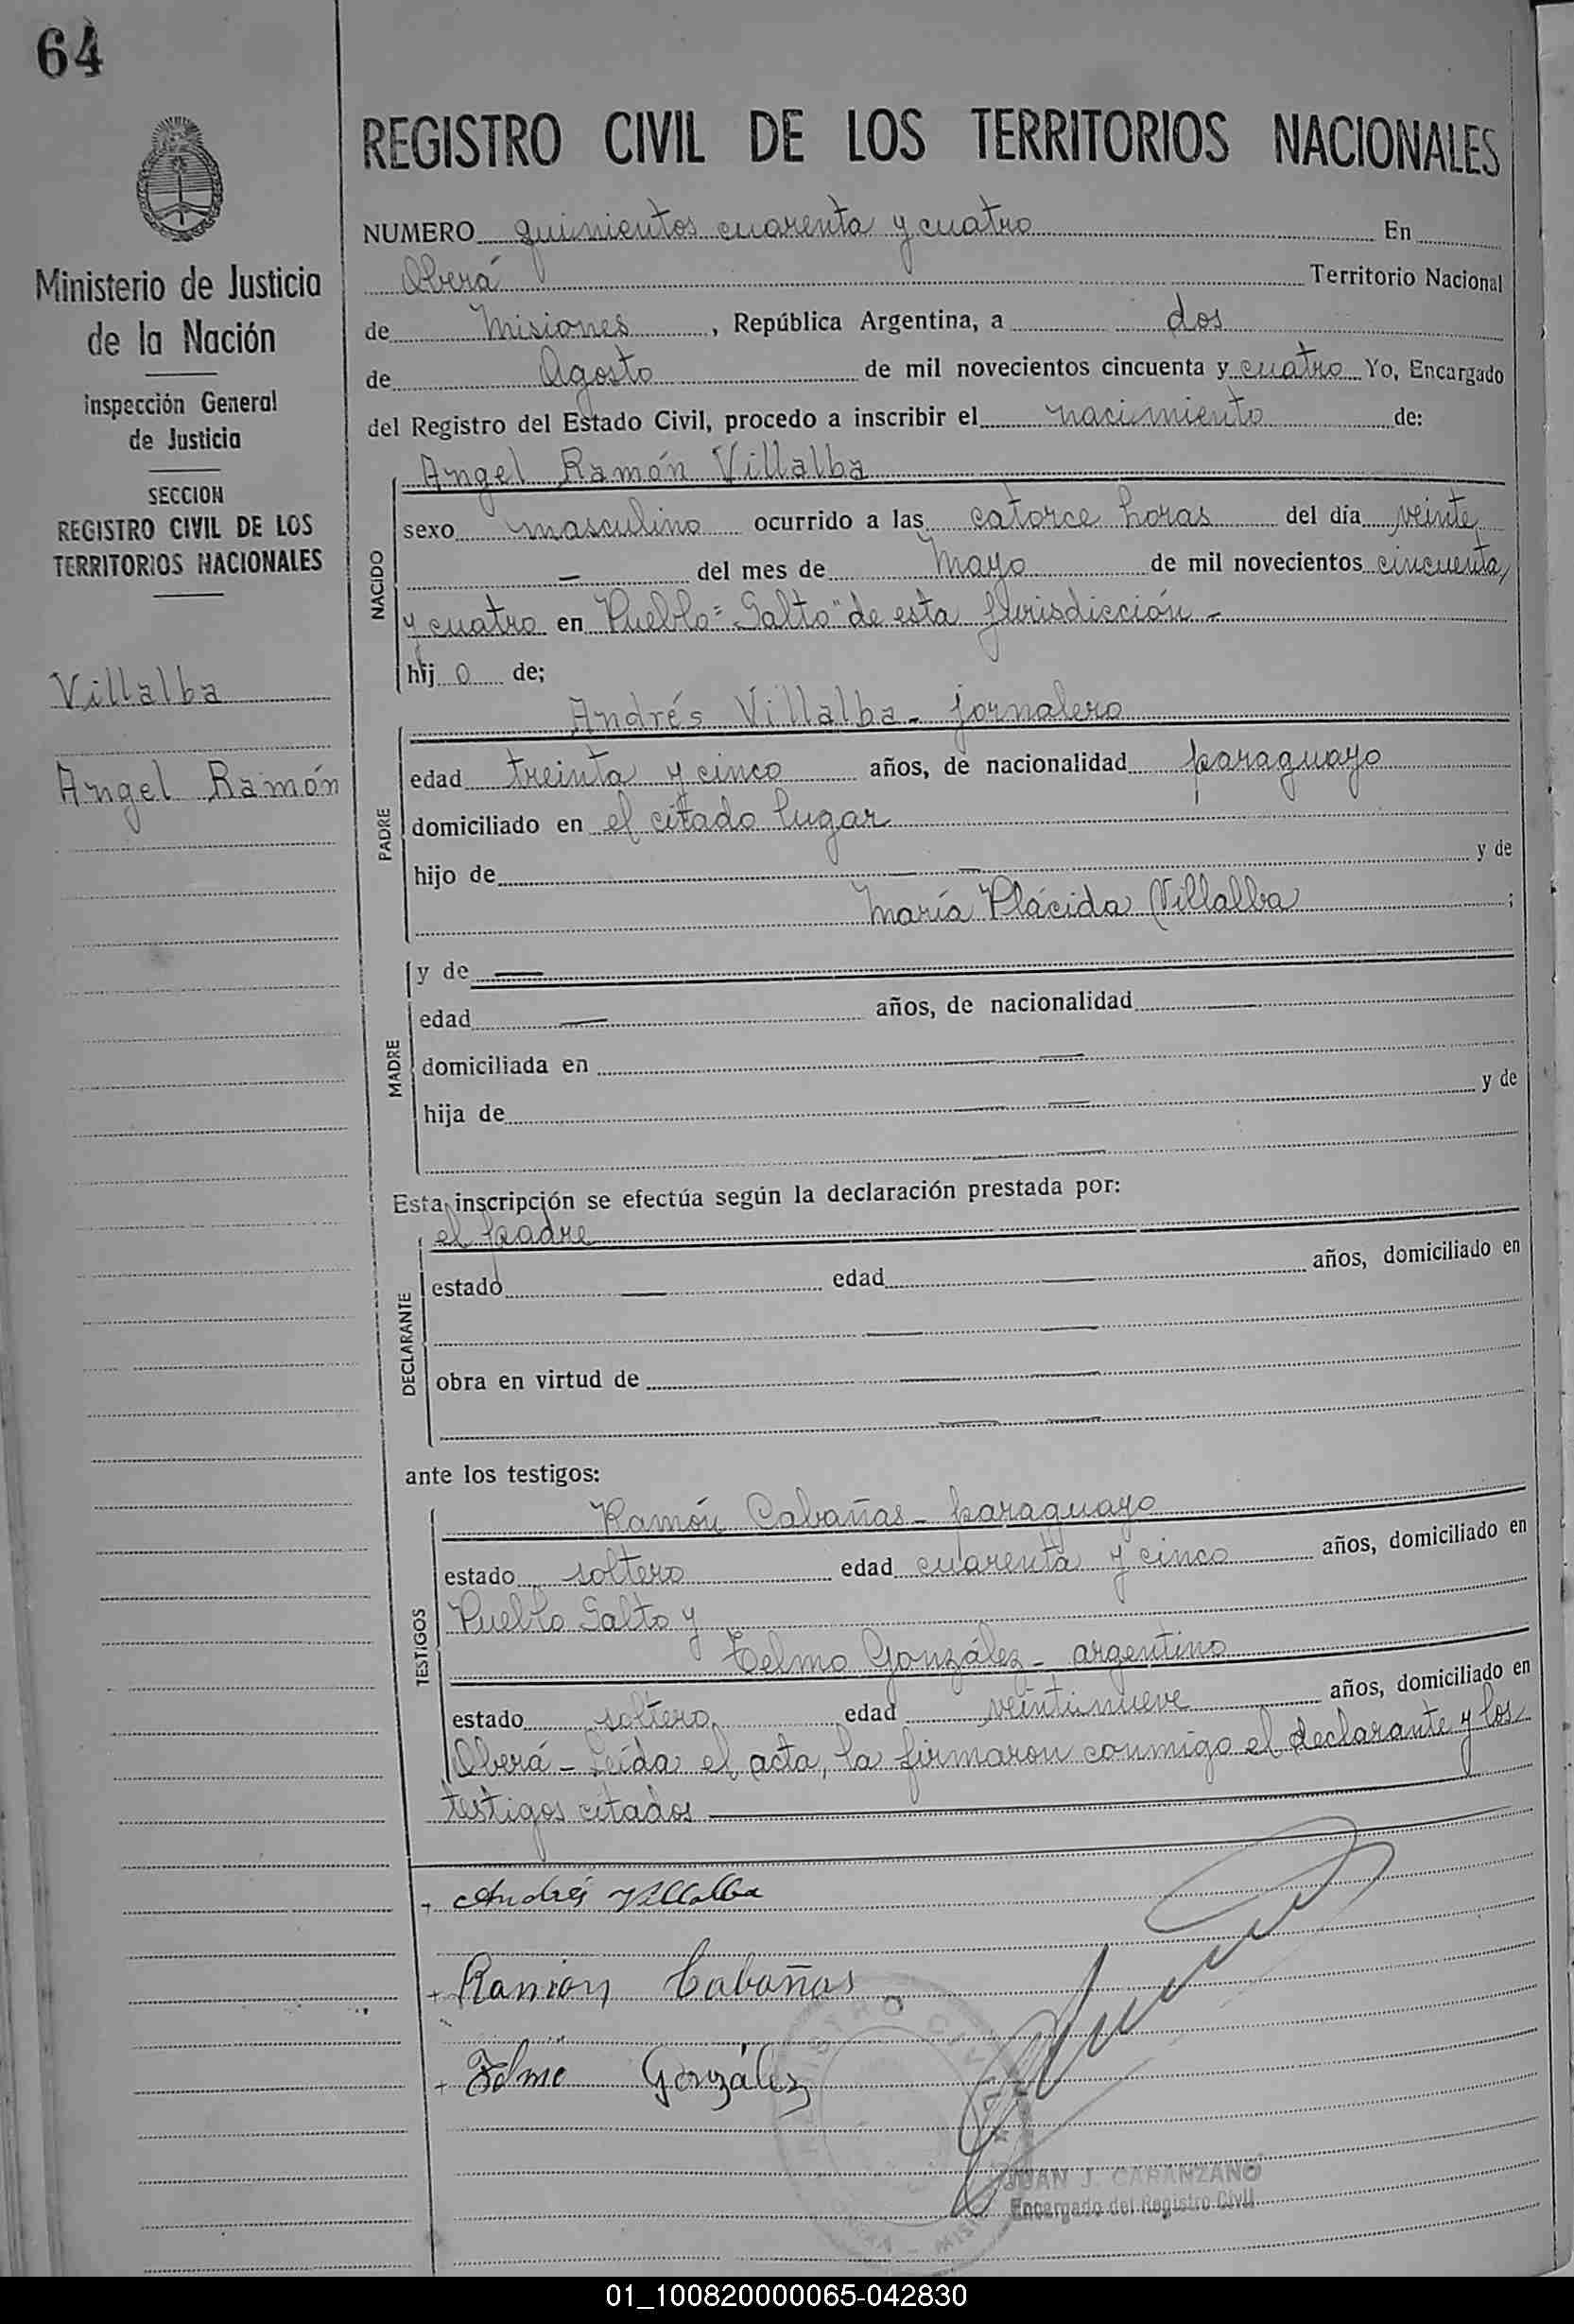 64
Ministerio de Justicia
de la Nación
Inspección General
de Justicia
SECCION
REGISTRO CIVIL DE LOS
TERRITORIOS NACIONALES
Villalba
Angel Ramón
REGISTRO CIVIL DE LOS TERRITORIOS NACIONALES
NUMERO quinientos cuarenta y cuatro En
Oberá Territorio Nacional
de Misiones, República Argentina, a dos
de Agosto de mil novecientos cincuenta y cuatro Yo, Encargado
del Registro del Estado Civil, procedo a inscribir el nacimiento de:
NACIDO
Angel Ramón Villalba
sexo masculino ocurrido a las catorce horas del día veinte
— del mes de Mayo de mil novecientos cincuenta
y cuatro en Pueblo "Salto" de esta jurisdicción -
hij o de;
PADRE
Andrés Villalba - jornalero
edad treinta y cinco años, de nacionalidad paraguayo
domiciliado en el citado lugar
hijo de — — y de
María Plácida Villalba ;
MADRE
y de —
edad — años, de nacionalidad —
domiciliada en — —
hija de — — y de
— —
Esta inscripción se efectúa según la declaración prestada por:
DECLARANTE
el padre
estado — edad — años, domiciliado en
— —
obra en virtud de — —
— —
ante los testigos:
TESTIGOS
Ramón Cabañas - paraguayo
estado soltero edad cuarenta y cinco años, domiciliado en
Pueblo Salto y
Telmo González - argentino
estado soltero edad veintinueve años, domiciliado en
Oberá - Leída el acta, la firmaron conmigo el declarante y los
testigos citados
- Andrés Villalba
+ Ramón Cabañas
+ Telmo González
REGISTRO CIVIL
JUAN J. CARANZANO
Encargado del Registro Civil
01_100820000065-042830